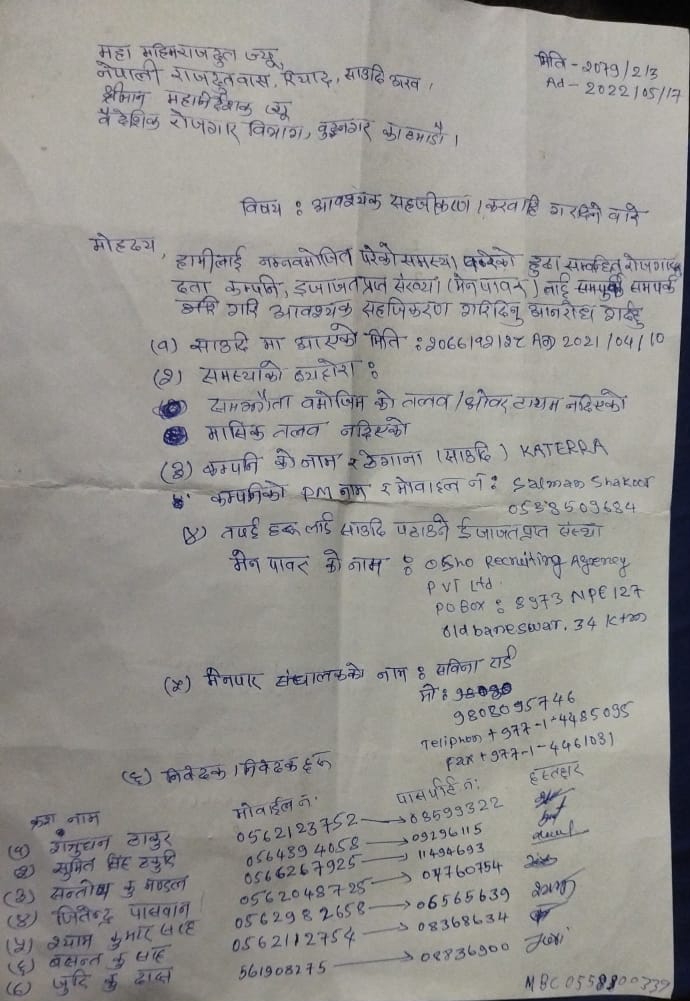 महा महिमराजदुत ज्यू,
नेपाली राजदुतवास, रियाद, साउदि अरव ।
श्रीमान महानिर्देशक ज्यू
वैदेशिक रोजगार विभाग, वुद्दनगर काठमाडौ ।
मिति - 2079/2/3
Ad - 2022/05/17
विषय : आवश्यक सहजीकरण । करवाहि गरिदिने वारे
मोहदय,
हामीलाई निम्नवमोजिम परेको समस्या हुदा सम्वन्धित रोजगार
दता कम्पनि, इजाजतप्राप्त संस्था (मेनपावर) लाई सम्पर्क
गरि आवश्यक सहजिकरण गरिदिनु अनरोध गर्दछु
(१) साउदि मा आएको मिति : २०७७/१२/२८ AD 2021/04/10
(२) समस्याको व्यहोरा :
समझौता वमोजिम को तलव/ओवर टायम नदिएको
मासिक तलव नदिएको
(३) कम्पनि को नाम र ठेगाना (साउदि) KATERRA
कम्पनिको PM नाम र मोवाइल नं : Salman Shakoor
0538509684
४) तपाई हरू लाई साउदि पठाउने ईजाजतप्राप्त संस्था
मेन पावर को नाम : Osho Recruiting Agency
PVT Ltd.
PO Box : 8973 NPC 127
Old baneswar. 34 Ktm
(५) मेनपार संचालकको नाम : सविना राई
मो :
9808095746
Teliphon + 977-1-4485095
Fax + 977-1-4461081
(६) निवेदक । निवेदक हरू
क्रश नाम मोवाईल नं. पासपोर्ट नं. हस्ताक्षर
(१) ठाकुर 0562123752 → 08599322
(२) सुमित सिंह 0564894058 → 09296115
(३) सन्तोष कु मण्डल 0566267925 → 11494693
(४) जितेन्द्र पासवान 0562048725 → 07760754
(५) श्याम कुमार साह 0562982658 → 06565639
(६) बसन्त कु साह 0562112754 → 08368634
(७) कु दास 561908275 → 08836900
MBC 0558800339